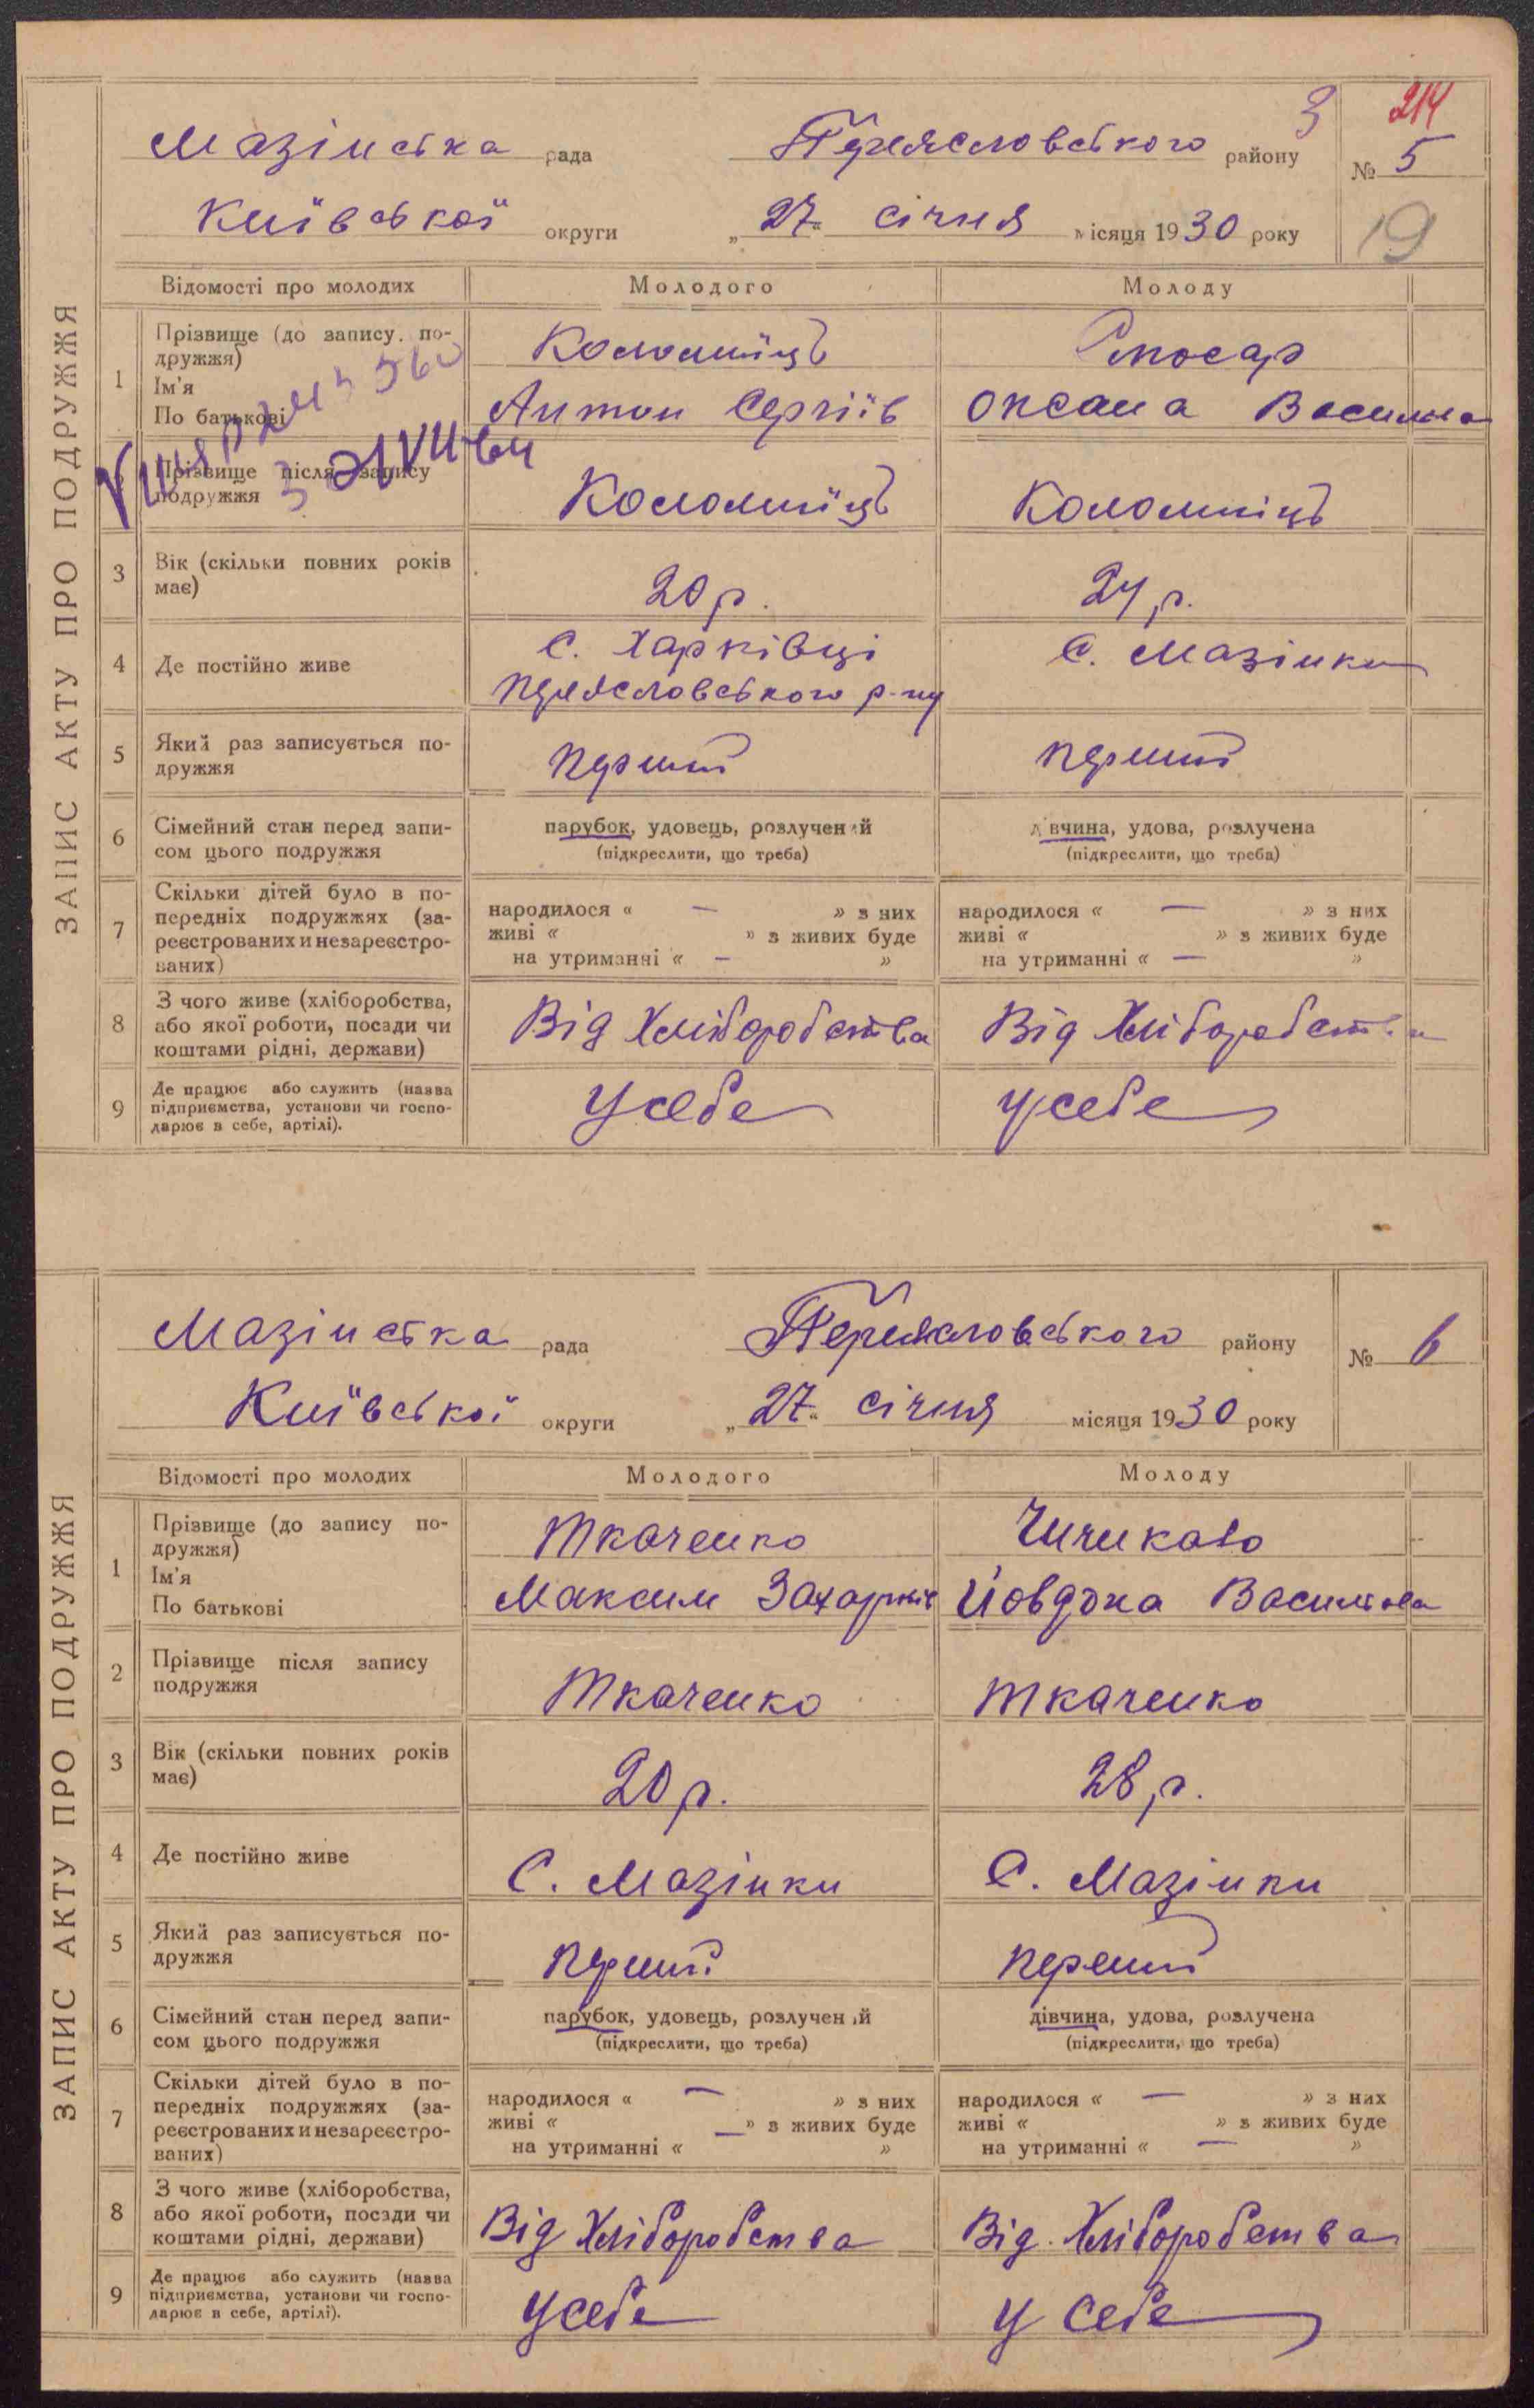 ЗАПИС АКТУ ПРО ПОДРУЖЖЯ
3
214
Мазінська рада Переясловського району № 5
Київської округи „27“ січня місяця 1930 року
19
Відомості про молодих Молодого Молоду
1 Прізвище (до запису подружжя) Коломиїць Слюсар
Ім'я
По батькові Антон Сергіїв Оксана Василів
Прізвище після запису подружжя Коломиїць Коломиіць
3 Вік (скільки повних років має) 20 р. 24 р.
4 Де постійно живе С. Харківці Переясловського р-ну С. Мазінки
5 Який раз записується подружжя перший перший
6 Сімейний стан перед записом цього подружжя парубок, удовець, розлучений дівчина, удова, розлучена
(підкреслити, що треба) (підкреслити, що треба)
7 Скільки дітей було в попередніх подружжях (зареєстрованих и незареєстрованих) народилося « — » з них народилося « — » з них
живі « » з живих буде живі « » з живих буде
на утриманні « — » на утриманні « — »
8 З чого живе (хліборобства, або якої роботи, посади чи коштами рідні, держави) Від Хліборобства Від Хліборобства
9 Де працює або служить (назва підприємства, установи чи господарює в себе, артілі). Усебе усебе
ЗАПИС АКТУ ПРО ПОДРУЖЖЯ
Мазінська рада Переясловського району № 6
Київської округи „27“ січня місяця 1930 року
Відомості про молодих Молодого Молоду
1 Прізвище (до запису подружжя) Ткаченко
Ім'я
По батькові Максим Захарків Йовдоха Василова
2 Прізвище після запису подружжя Ткаченко Ткаченко
3 Вік (скільки повних років має) 20 р. 28 р.
4 Де постійно живе С. Мазінки С. Мазінки
5 Який раз записується подружжя перший перший
6 Сімейний стан перед записом цього подружжя парубок, удовець, розлучений дівчина, удова, розлучена
(підкреслити, що треба) (підкреслити, що треба)
7 Скільки дітей було в попередніх подружжях (зареєстрованих и незареєстрованих) народилося « — » з них народилося « — » з них
живі « » з живих буде живі « » з живих буде
на утриманні « — » на утриманні « — »
8 З чого живе (хліборобства, або якої роботи, посади чи коштами рідні, держави) Від Хліборобства Від Хліборобства
9 Де працює або служить (назва підприємства, установи чи господарює в себе, артілі). Усебе у себе